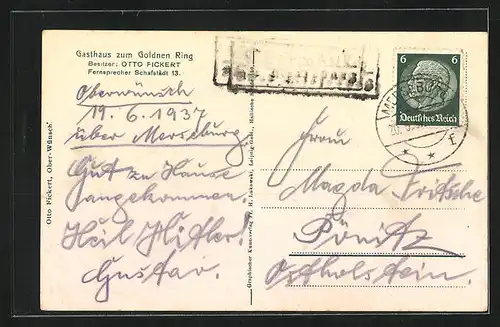 Gasthaus zum Goldnen Ring
Besitzer: OTTO FICKERT
Fernsprecher Schafstädt 13.
Oberwünsch
19. 6. 1937
über Merseburg
Gut zu Hause
angekommen
Heil Hitler!
Gustav.
Otto Fickert, Ober-Wünsch
Graphischer Kunstverlag
6 6
Deutsches Reich
Magda Fritsche
Pönitz
Ostholstein.